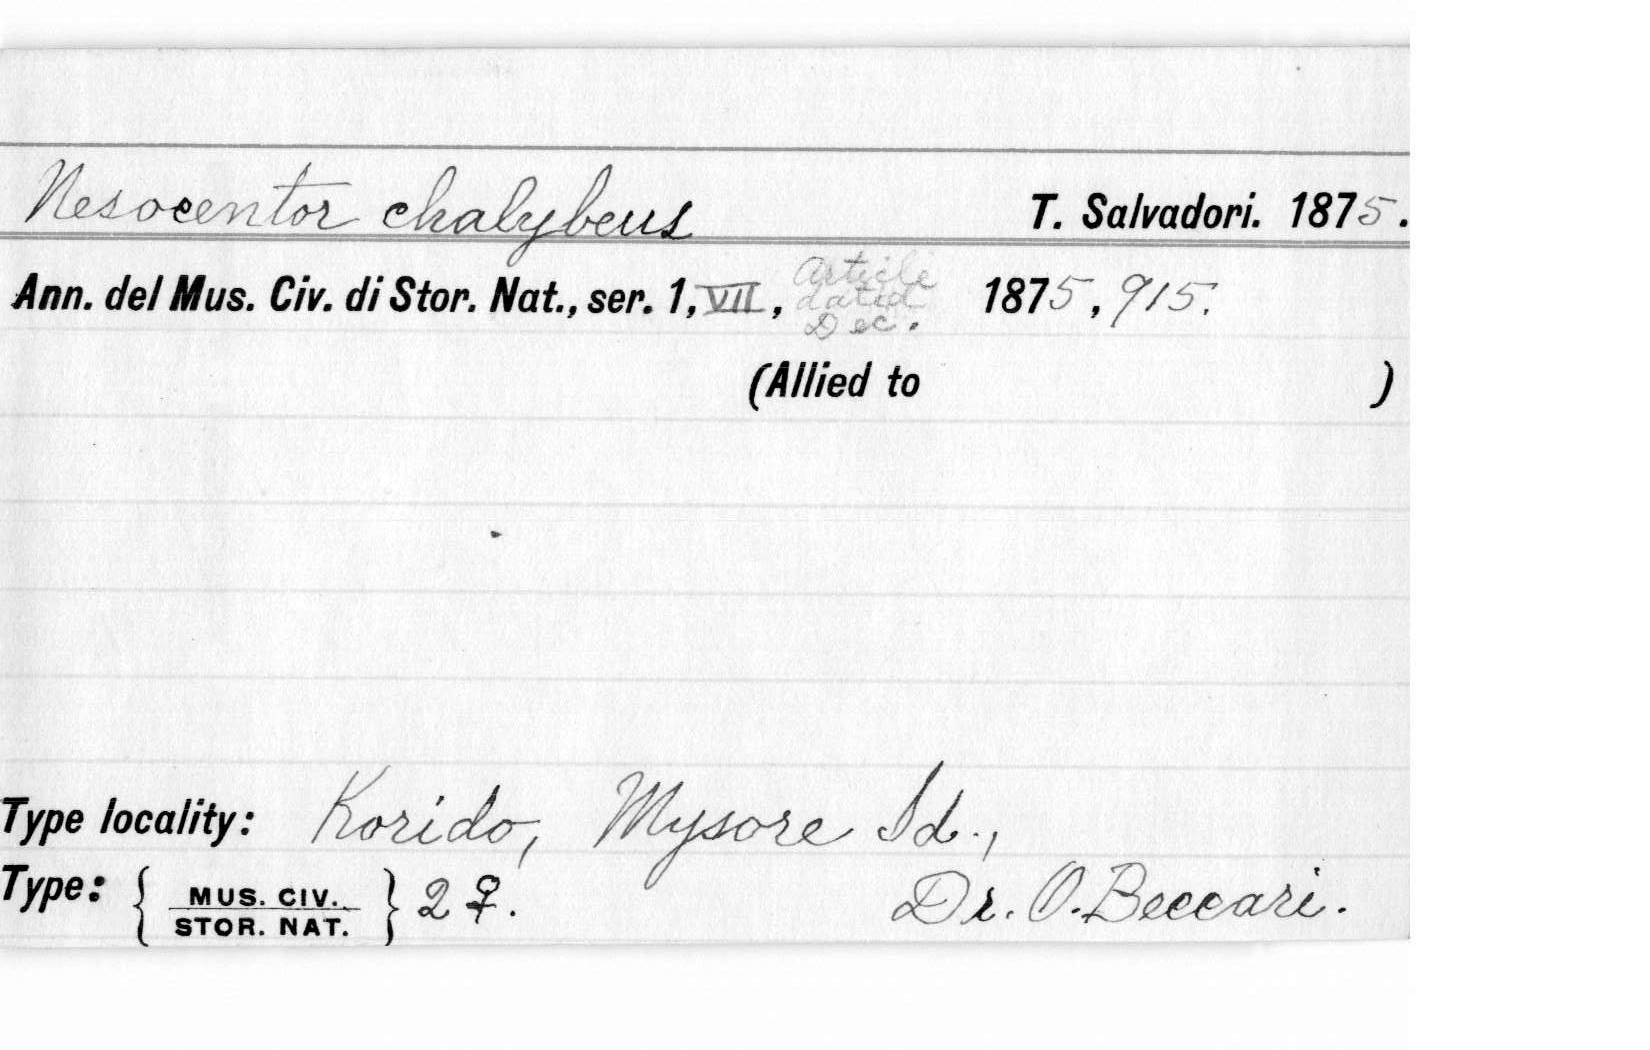 Nesocentor chalybeus T. Salvadori. 1875.
Ann. del Mus. Civ. di Stor. Nat., ser. 1, VII, Article dated Dec. 1875, 915.
(Allied to )
Type locality: Korido, Mysore Id.,
Type: { MUS. CIV. STOR. NAT. } 2 ♀. Dr. O. Beccari.